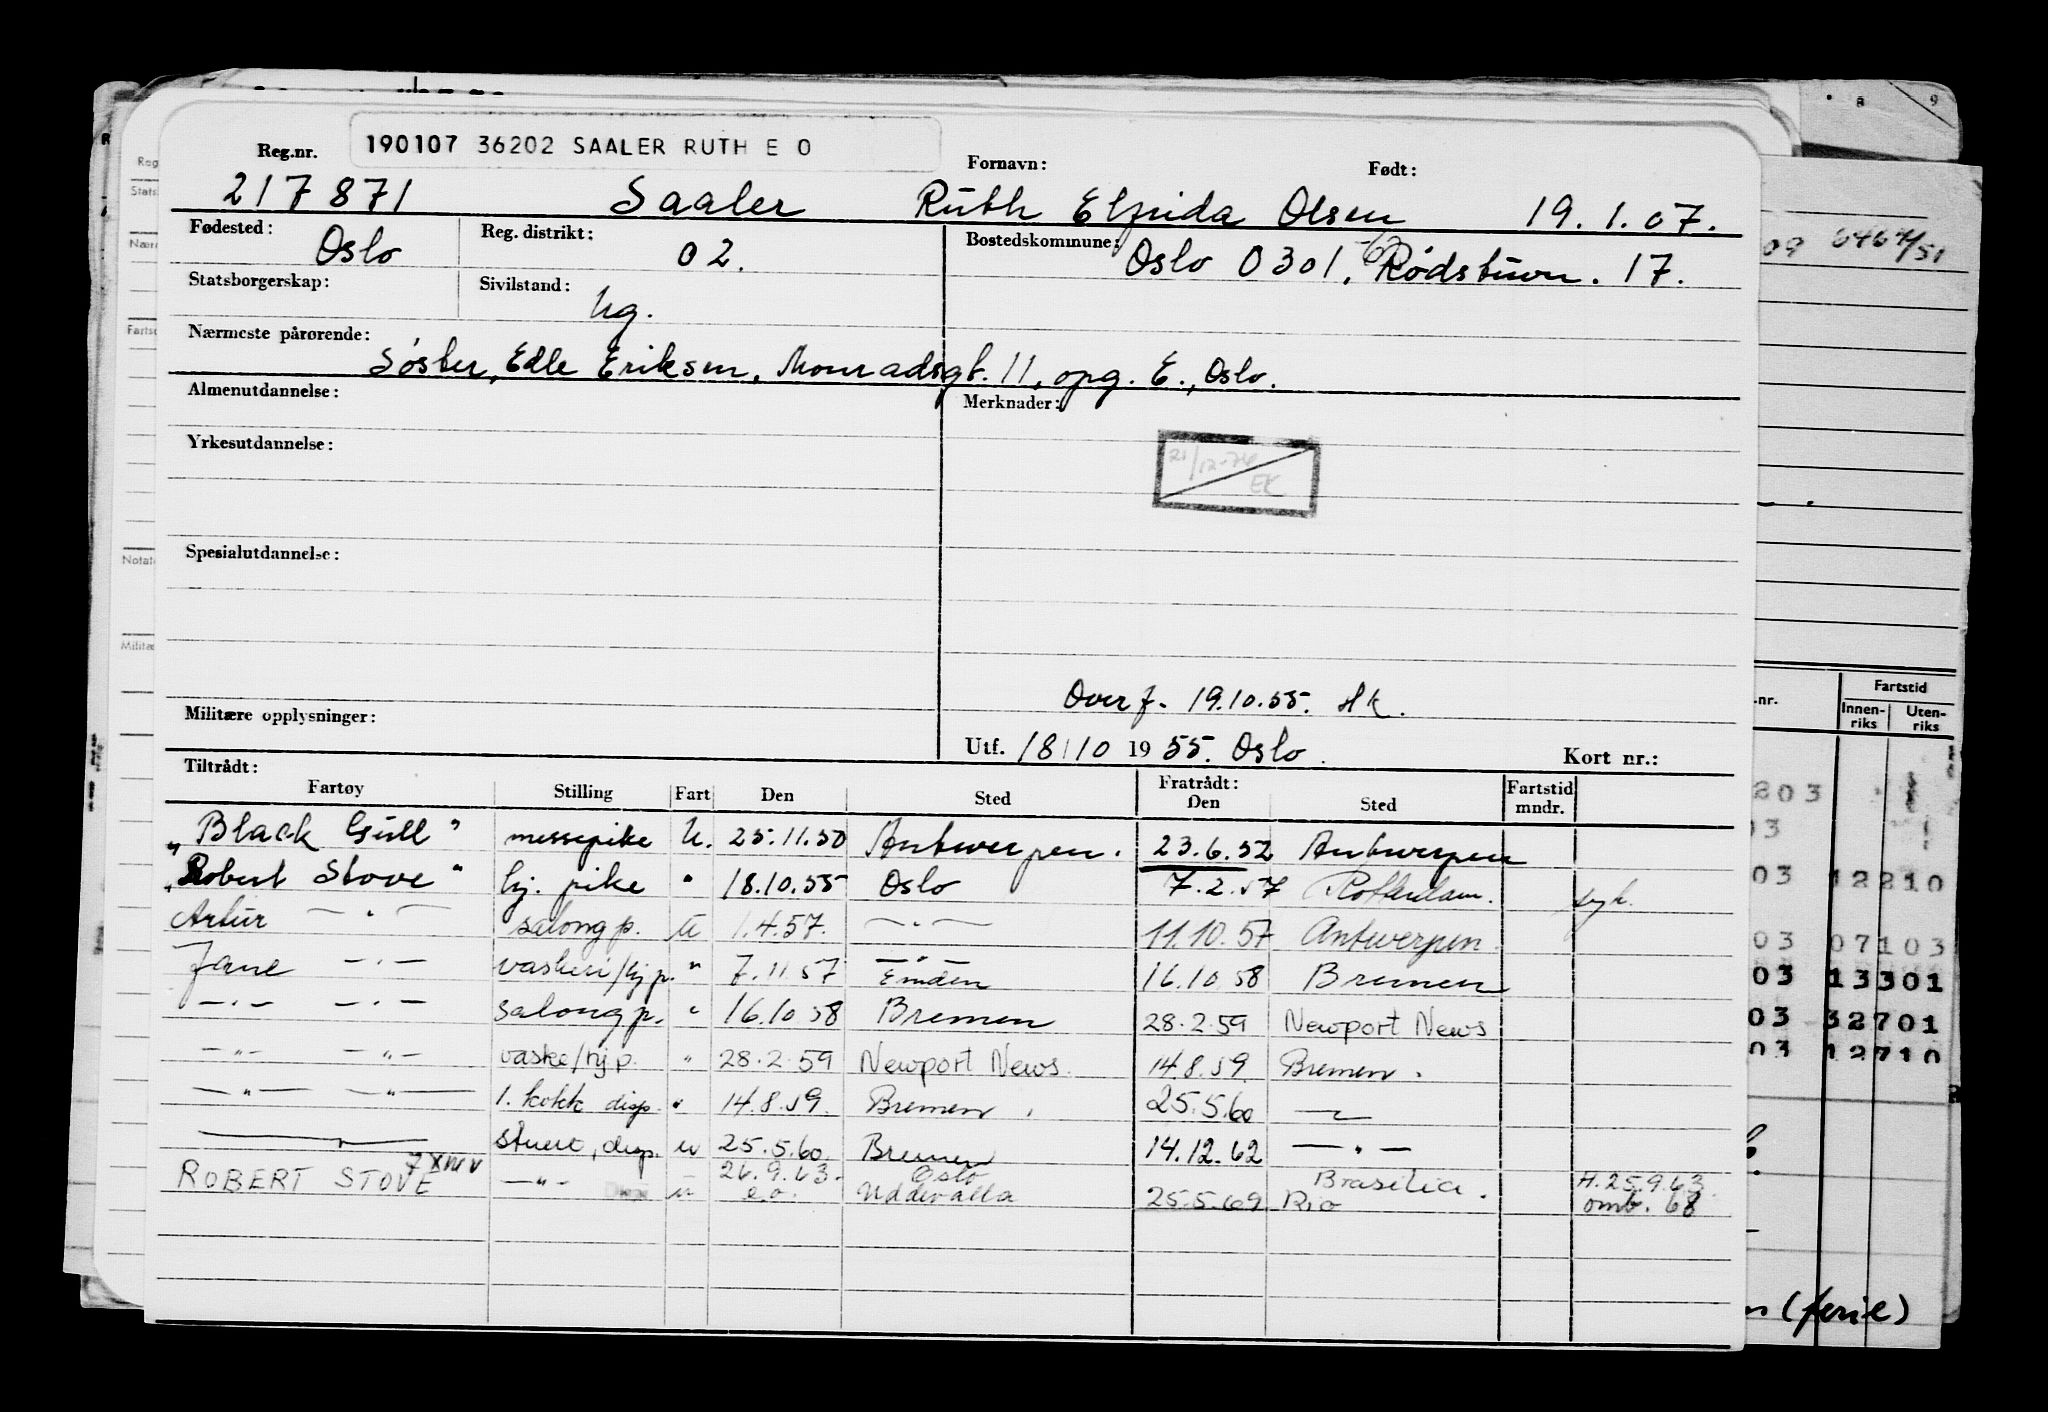 190107 36202 SAALER RUTH E O
Reg.nr. Fornavn: Født:
217871 Saaler Ruth Elfrida Olsen 19.1.07.
Fødested: Oslo Reg. distrikt: 02. Bostedskommune: Oslo 0301, Rødstuvn. 17.
Statsborgerskap: Sivilstand: Ug.
Nærmeste pårørende:
Søster, Edle Eriksen, Monradsgt. 11, opg. E., Oslo.
Almenutdannelse: Merknader:
Yrkesutdannelse:
21/12-74 EK
Spesialutdannelse:
Overf. 19.10.55. Hk.
Militære opplysninger:
Utf. 18/10 1955. Oslo. Kort nr.:
Tiltrådt: Fratrådt:
Fartøy Stilling Fart Den Sted Den Sted Fartstid mndr.
"Black Gull" messepike U. 25.11.50 Antwerpen. 23.6.52 Antwerpen
"Robert Stove" hj. pike " 18.10.55 Oslo 7.2.57 Rotterdam. syk.
Artur — " — salongp. U 1.4.57. — " — 11.10.57 Antwerpen.
Jane — " — vaskeri/hjp. " 7.11.57 — " — Emden 16.10.58 Bremen
— " — — " — salongp. " 16.10.58 Bremen 28.2.59 Newport News
— " — — " — vaske/hjp. " 28.2.59 Newport News. 14.8.59. Bremen.
— " — — " — 1. kokk disp. " 14.8.59. Bremen. 25.5.60 — " —
— " — stuert, disp. U 25.5.60. Bremen 14.12.62 — " —
7 XWV 26.9.63. Oslo Brasilia. H.25.9.63.
ROBERT STOVE — " — U e.o. Uddevalla 25.5.69 Rio omb. 68
8 9
09 6464/51
Fartstid
.nr. Innen-riks Uten-riks
203
03 12210
03 07103
03 13301
03 32701
03 12710
(ferie)
Reg
Stats
Nære
Fartsc
Notate
Militæ